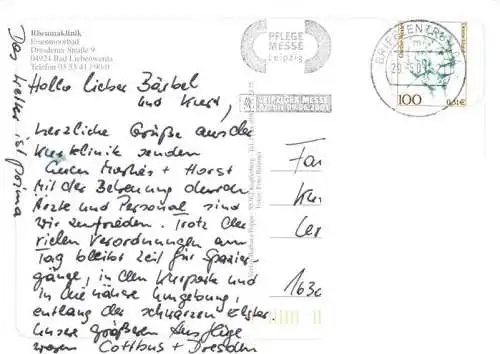 Rheumaklinik
Eisenmoorbad
Dresdener Straße 9
04924 Bad Liebenwerda
Telefon 03 53 41 / 90-0
Das Wetter ist prima
Hallo lieber Bärbel
und Kurt,
herzliche Grüße aus der
Kurklinik senden
Euch + Horst
Mit der Betreuung durch
Ärzte und Personal sind
wir zufrieden. Trotz der
vielen Verordnungen am
Tag bleibt Zeit für Spazier
gänge, in den Kurpark und
in die nähere Umgebung,
entlang der schwarzen Elster
Unsere größeren Ausflüge
waren Cottbus + Dresden
PFLEGE
MESSE
Leipzig
LEIPZIGER MESSE
BRIEFZENTRUM
100
0,51€
Fam
Ku
1630